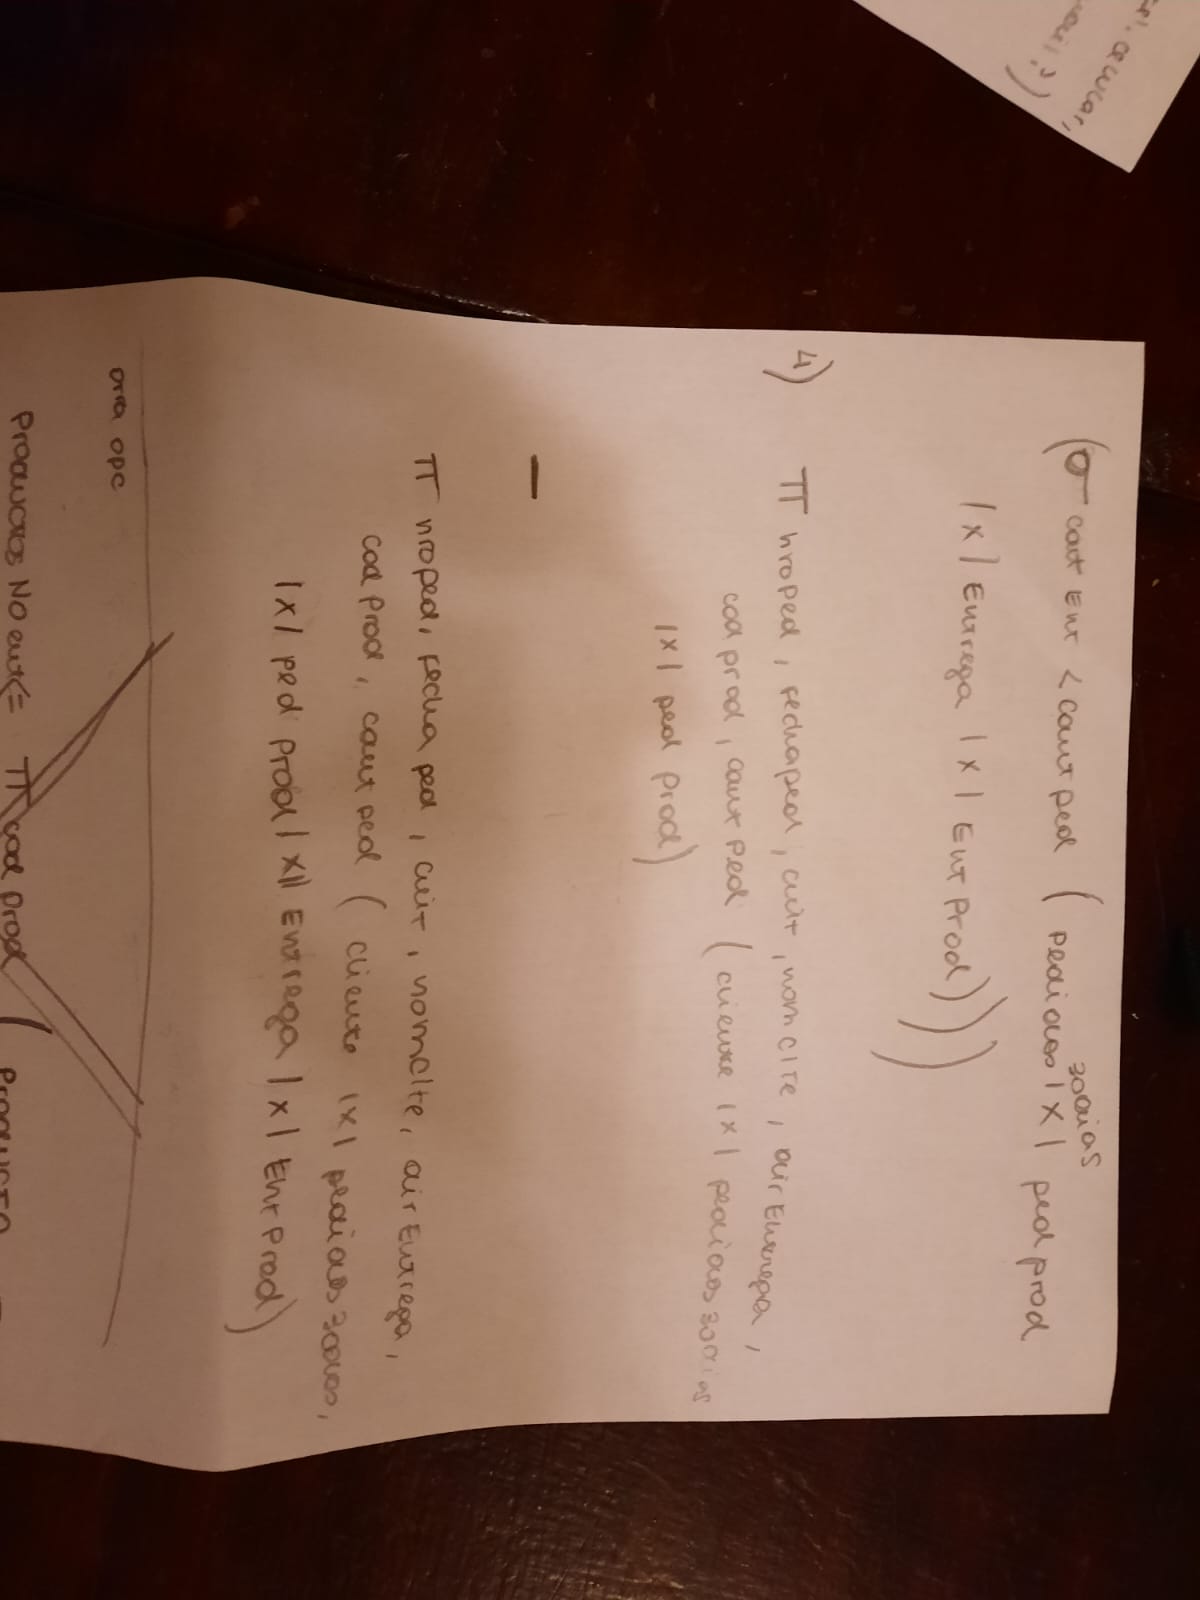 (σ cant Ent < cant ped ( pedidos 30dias |X| ped prod
|x| Entrega |x| Ent Prod)))
4) π nroped, fechaped, cuit, nomclte, dirEntrega,
cod prod, cant ped ( cliente |x| pedidos 30dias
|x| ped prod)
—
π nroped, fecha ped, cuit, nomclte, dirEntrega,
cod prod, cant ped ( cliente |x| pedidos 30dias,
|x| ped prod |x|| Entrega |x| Ent Prod)
otra opc
Productos No ent <= π cod prod ( Producto